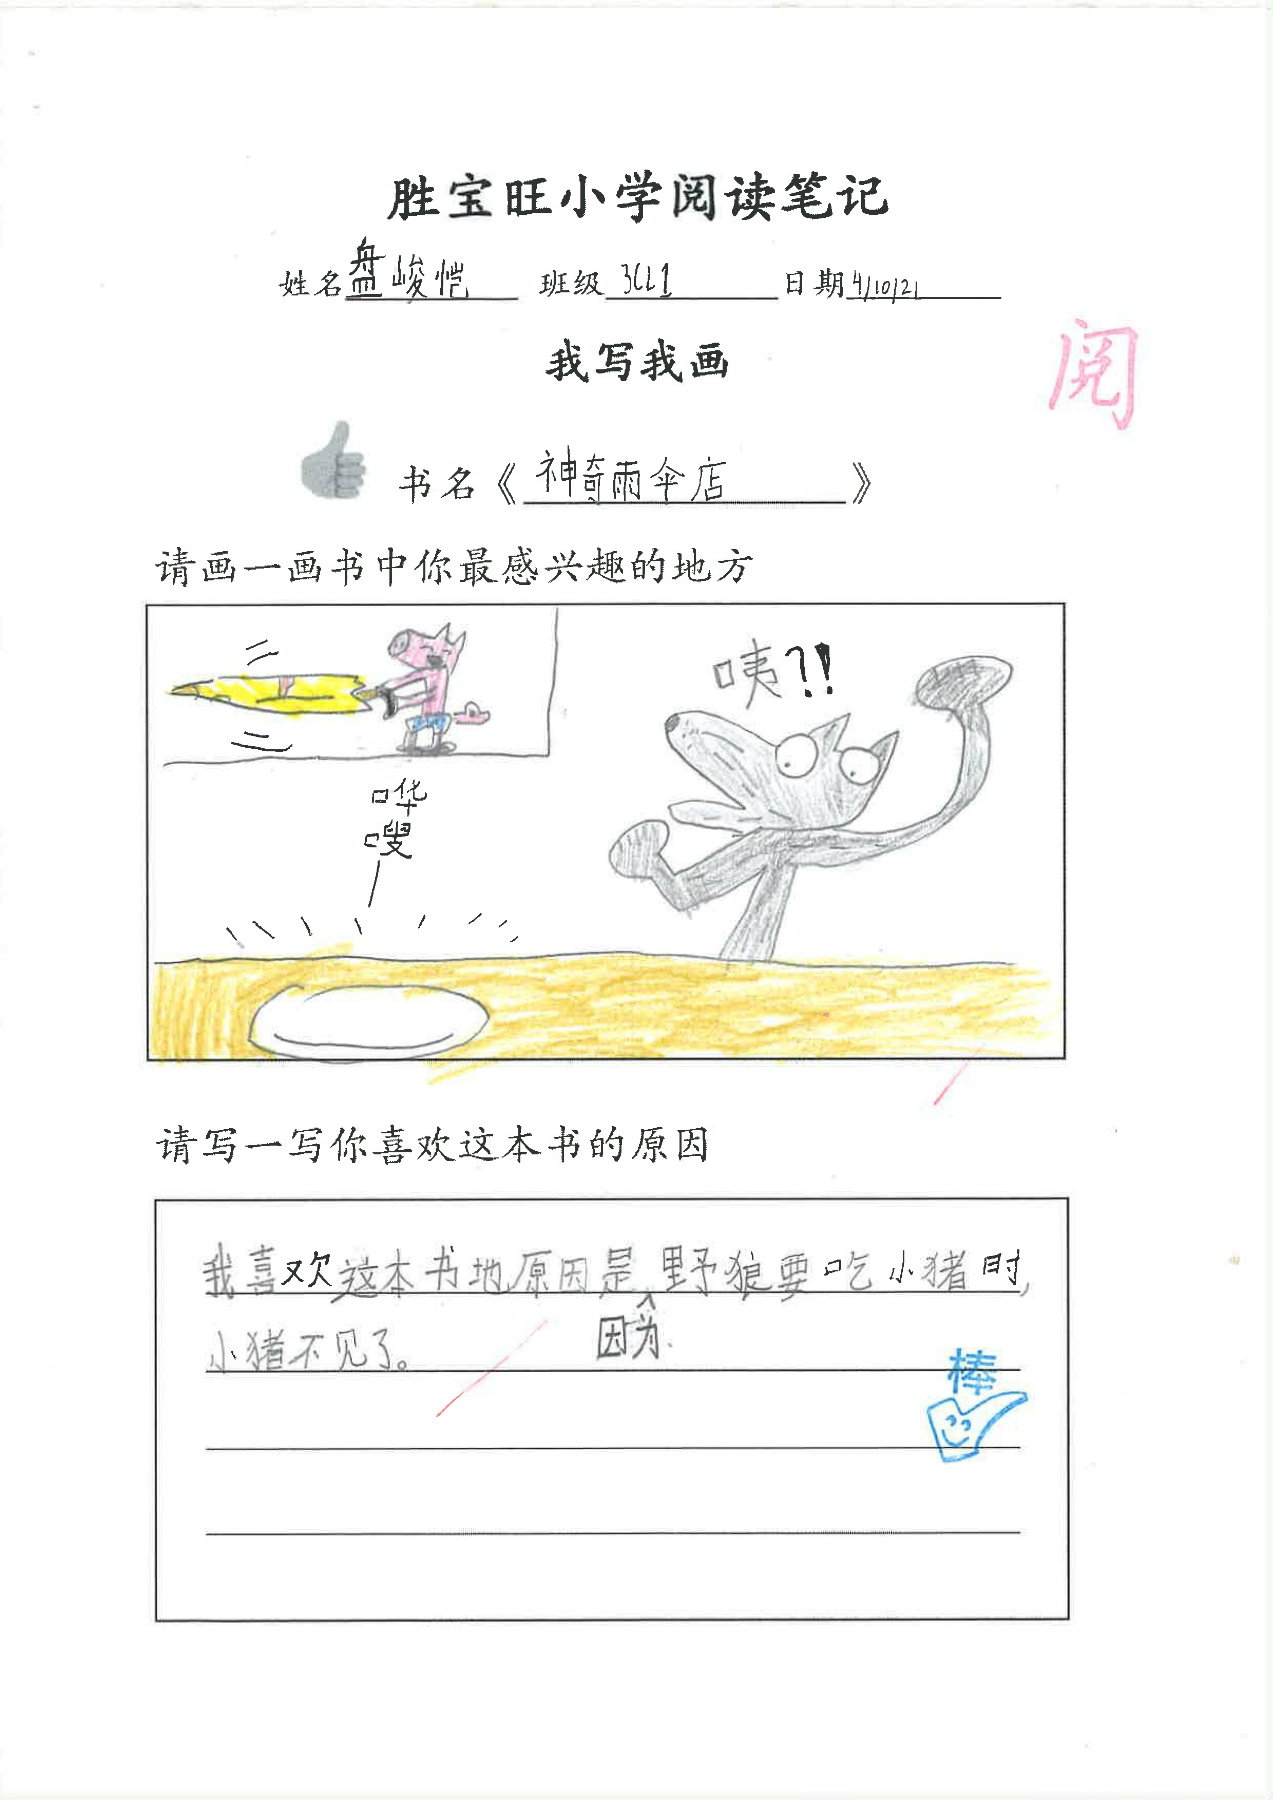 胜宝旺小学阅读笔记
姓名盘峻恺 班级3CL1 日期4/10/21
我写我画
阅
书名《神奇雨伞店》
请画一画书中你最感兴趣的地方
咦?!!
哗
嗖
请写一写你喜欢这本书的原因
我喜欢这本书地原因是野狼要吃小猪时,
因为
小猪不见了。
棒